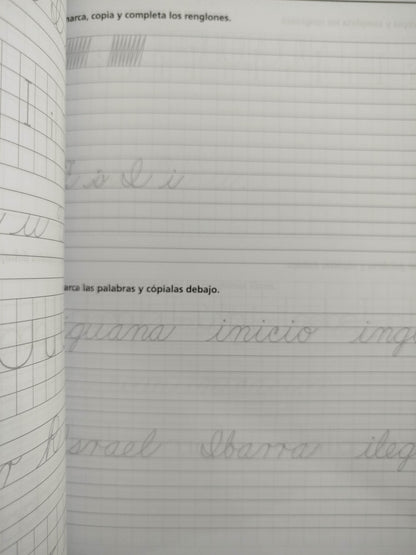 marca, copia y completa los renglones.
i I i
marca las palabras y cópialas debajo.
iguana inicio
Israel Ibarra